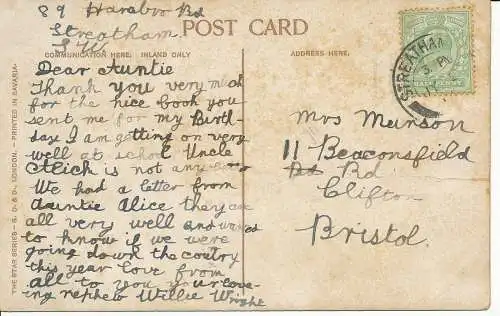 89 Rd
Streatham
S.W.
POST CARD
COMMUNICATION HERE. INLAND ONLY
ADDRESS HERE.
Dear Auntie
Thank you very much
for the nice book you
sent me for my Birth-
day I am getting on very
well at school Uncle
is not any
We had a letter from
Auntie Alice they are
all very well and wanted
to know if we were
going down the coutry
this year love from
all to you your lov-
ing nephew Willie Wright
THE STAR SERIES - G. D. & D., LONDON. - PRINTED IN BAVARIA
STREATHAM
HALF PENNY
Mrs Munson
11 Beaconsfield
Rd Rd
Clifton
Bristol.